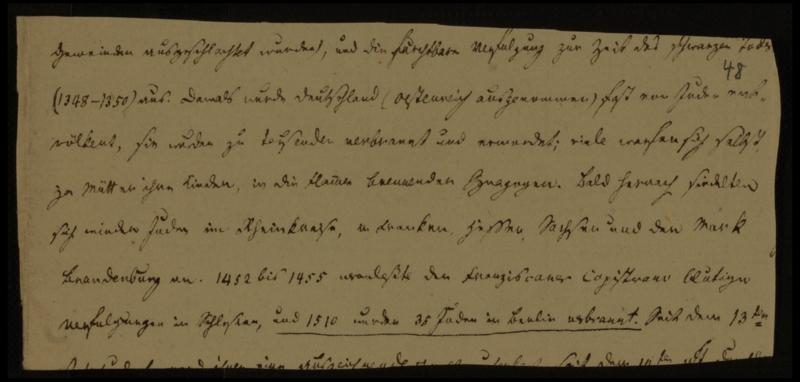 Gemeinden ausgeschlachtet wurden), und die furchtbare Verfolgung zur Zeit des schwarzen Todes
48
(1348–1350) aus. Damals wurde Deutschland (Oesterreich ausgenommen) fast von Juden ent-
völkert, sie wurden zu Tausenden verbrannt und ermordet; viele warfen sich selbst,
ja Mütter ihre Kinder, in die Flammen brennender Synagogen. Bald hernach siedelten
sich wieder Juden im Rheinkreise, in Franken, Hessen, Sachsen und der Mark
Brandenburg an. 1452 bis 1455 veranlaßte der Franziscaner Capistrano blutige
Verfolgungen in Schlesien, und 1510 wurden 35 Juden in Berlin verbrannt. Seit dem 13ten